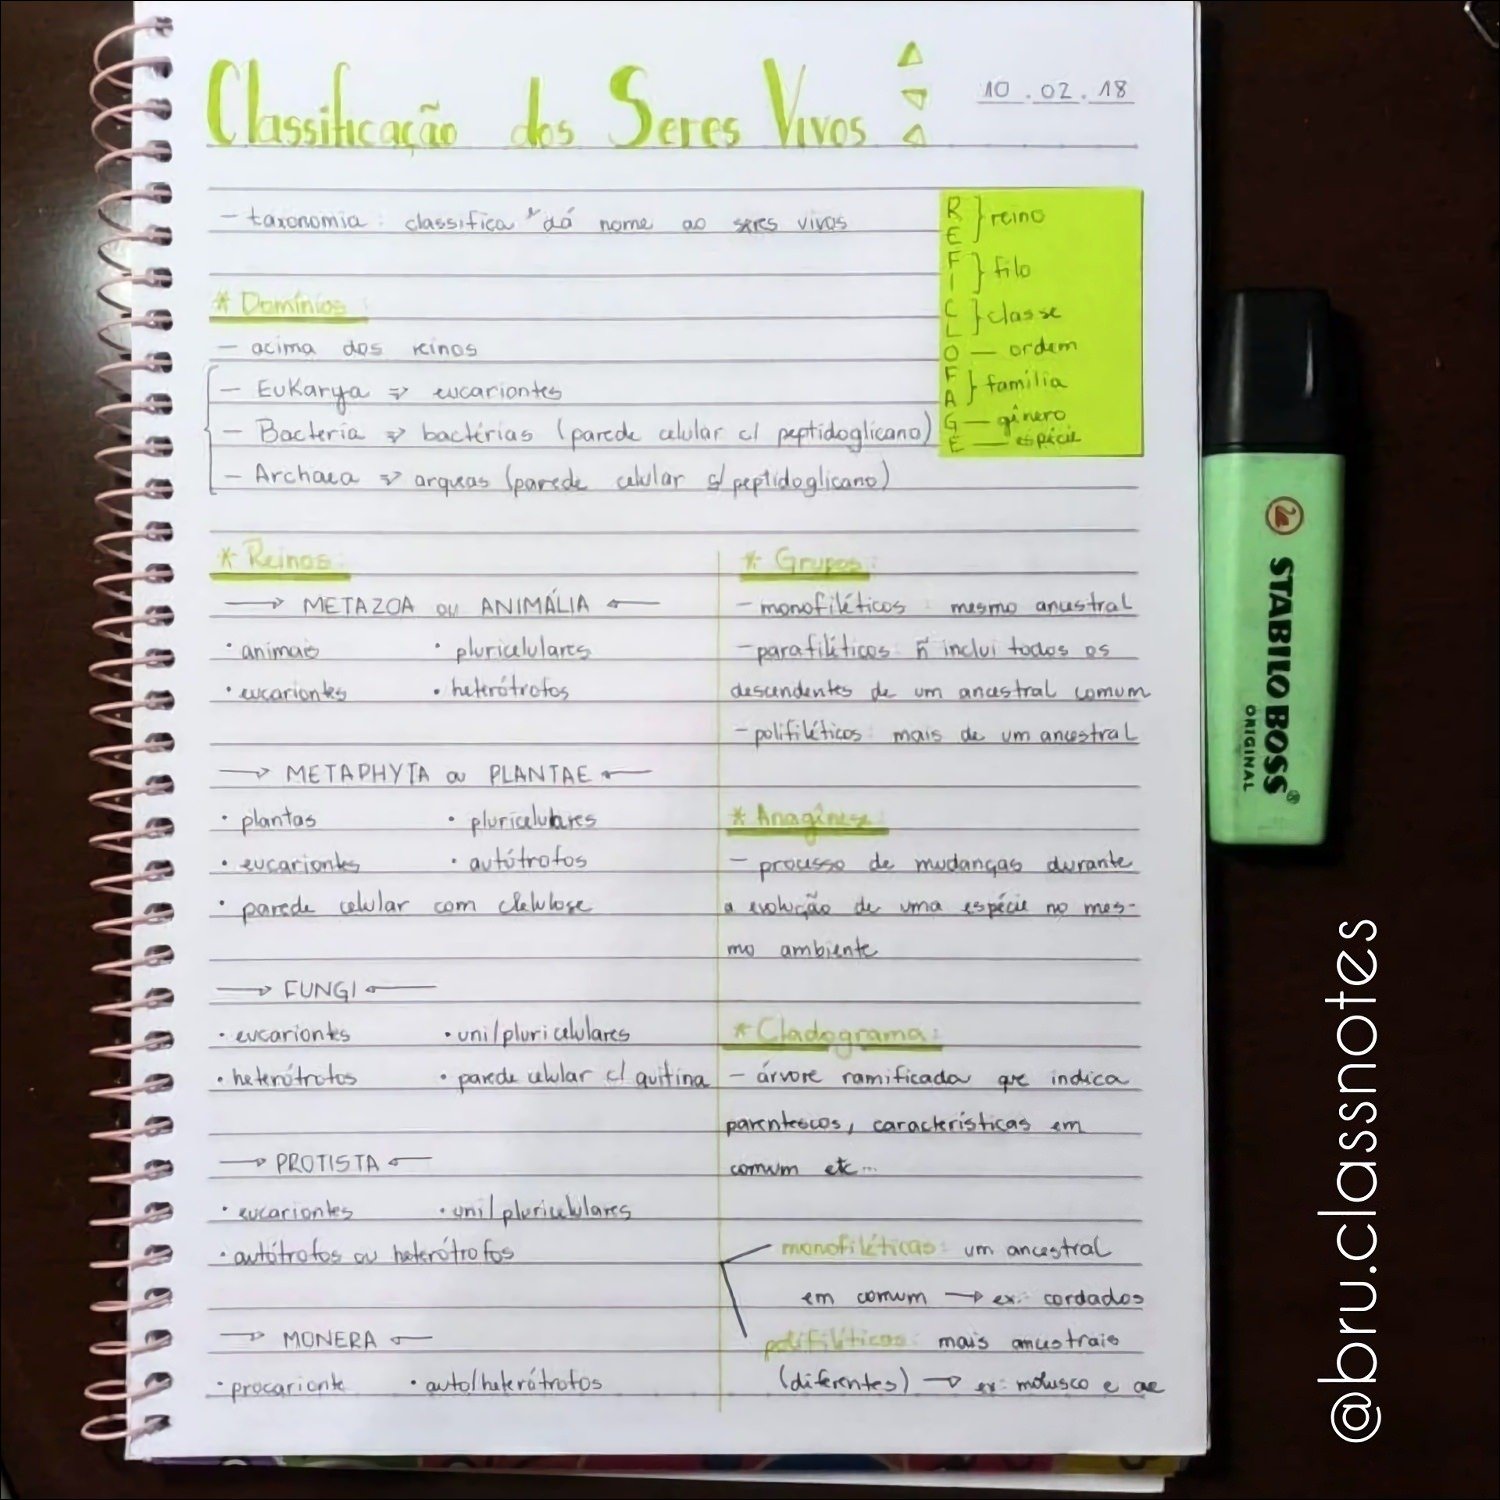 Classificação dos Seres Vivos
10.02.18
- taxonomia: classifica e dá nome ao seres vivos
R E } reino
F I } filo
C L } classe
O — ordem
F A } família
G — gênero
E — espécie
* Domínios:
- acima dos reinos
- Eukarya => eucariontes
- Bacteria => bactérias (parede celular c/ peptidoglicano)
- Archaea => arqueas (parede celular s/ peptidoglicano)
* Reinos:
→ METAZOA ou ANIMÁLIA ←
• animais • pluricelulares
• eucariontes • heterótrofos
→ METAPHYTA ou PLANTAE ←
• plantas • pluricelulares
• eucariontes • autótrofos
• parede celular com clelulose
→ FUNGI ←
• eucariontes • uni/pluricelulares
• heterótrofos • parede celular c/ quitina
→ PROTISTA ←
• eucariontes • uni/pluricelulares
• autótrofos ou heterótrofos
→ MONERA ←
• procarionte • auto/heterótrofos
* Grupos:
- monofiléticos: mesmo ancestral
- parafiléticos: ñ inclui todos os
descendentes de um ancestral comum
- polifiléticos: mais de um ancestral
* Anagênese:
- processo de mudanças durante
a evolução de uma espécie no mes-
mo ambiente
* Cladograma:
- árvore ramificada que indica
parentescos, características em
comum etc...
monofiléticas: um ancestral
em comum → ex: cordados
polifiléticas: mais ancestrais
(diferentes) → ex: molusco e ae
STABILO BOSS®
ORIGINAL
@bru.classnotes